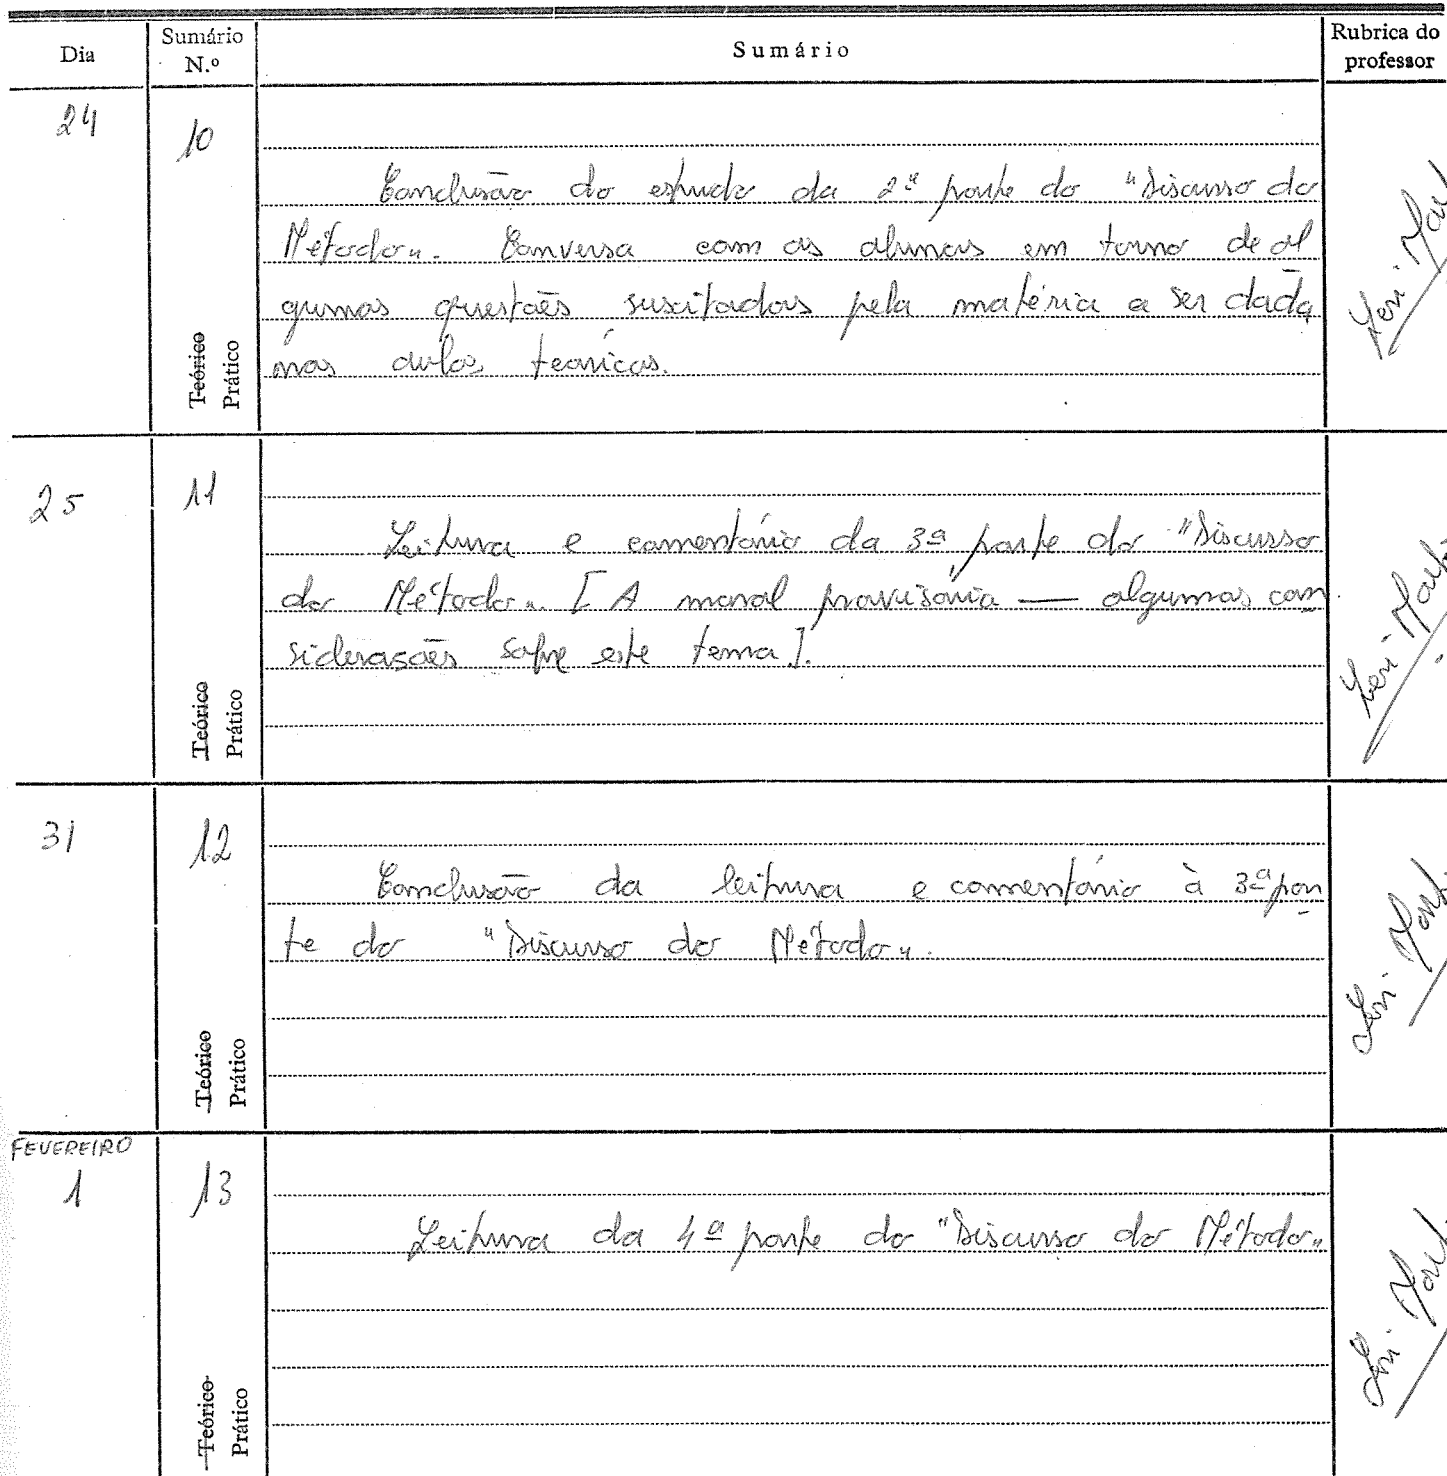 Dia
Sumário
N.º
Sumário
Rubrica do
professor
24
10
Conclusão do estudo da 2ª parte do "Discurso do
Método". Conversa com os alunos em torno de al
gumas questões suscitadas pela matéria a ser dada
nas aulas teóricas.
Teórico
Prático
25
11
Leitura e comentário da 3ª parte do "Discurso
do Método". [A moral provisória — algumas con
siderações sobre este tema].
Teórico
Prático
31
12
Conclusão da leitura e comentário à 3ª par
te do "Discurso do Método".
Teórico
Prático
FEVEREIRO
1
13
Leitura da 4ª parte do "Discurso do Método"
Teórico
Prático